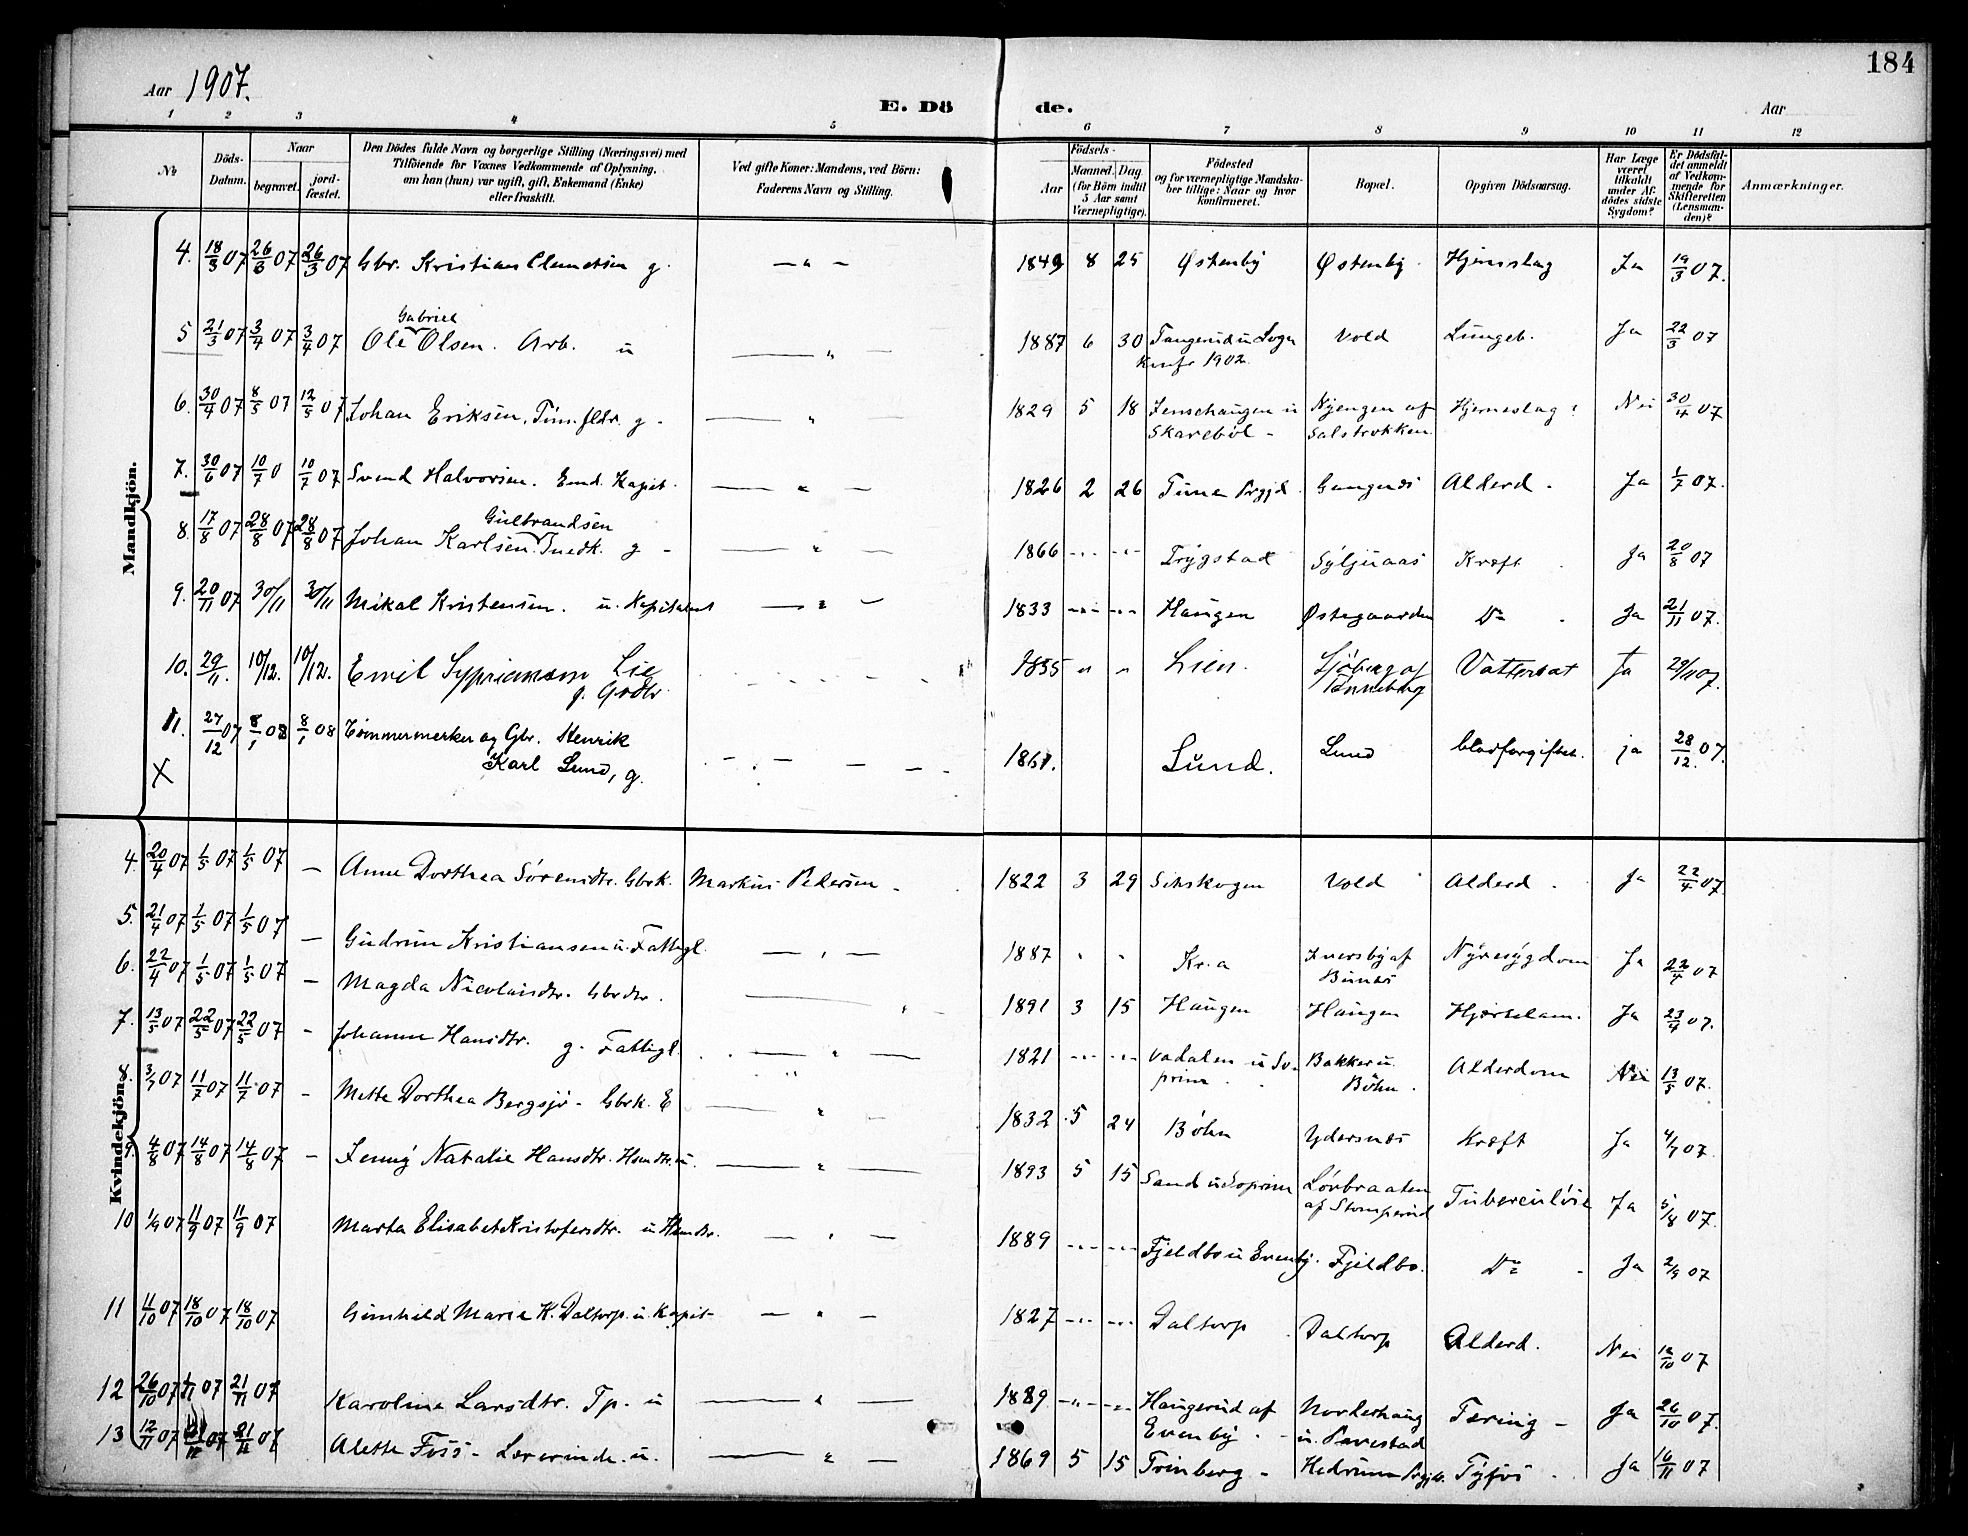 184
Aar 1907. E. Dö de. Aar
1 2 3 4 5 6 7 8 9 10 11 12
No
Döds-Datum.
Naar
begravet.
jord-fæstet.
Den Dödes fulde Navn og borgerlige Stilling (Næringsvei) med
Tilföiende for Voxnes Vedkommende af Oplysning,
om han (hun) var ugift, gift, Enkemand (Enke)
eller fraskilt.
Ved gifte Koner: Mandens, ved Börn:
Faderens Navn og Stilling.
Födsels-
Aar
Maaned. Dag
(for Börn indtil
5 Aar samt
Værnepligtige).
Födested
og for værnepligtige Mandska-
ber tillige: Naar og hvor
Konfirmeret.
Bopæl.
Opgiven Dödsaarsag.
Har Læge
været
tilkaldt
under Af-
dödes sidste
Sygdom?
Er Dödsfal-
det anmeldt
af Vedkom-
mende for
Skifteretten
(Lensman-
den)?
Anmærkninger.
Mandkjön.
4. 18/3 07 26/3 07 26/3 07 Gbr. Kristian Clemetsen g. — " — 1849 8 25 Østenby Østenby Hjerneslag Ja 19/3 07.
Gabriel
5 21/3 07 3/4 07 3/4 07 Ole Olsen. Arb. u — " — 1887 6 30 Tangerud u Logn Vold Lungeb. Ja 22/3 07
Konfr 1902
6. 30/4 07 8/5 07 12/5 07 Johan Eriksen, Tøm. fldr. g. — " 1829 5 18 Jenshaugen u Njengen af Hjerneslag Nei 30/4 07
Skarebøl - Salstrokken
7. 30/6 07 10/7 0 10/7 07 Svend Halvorsen. Emd. Kapit. — " — 1826 2 26 Tune Prgjd. Gangnæs Alderd. Ja 1/7 07.
Gulbrandsen
8. 17/8 07 28/8 07 28/8 07 Johan Karlsen. Indk. g — " — 1866 -"- -"- Trygstad Syljuaas Kræft Ja 20/8 07
9. 20/11 07 30/11 30/11 Mikal Kristensen. u. Kapitalist — " — 1833 -"- -"- Haugen Østegaarden Do Ja 21/11 07.
10. 29/11. 10/12. 10/12. Emil Syprianson Lie 1835 " " Lien. Sjøberg af Vattersot Ja 29/11 07.
g. Grdbr. Tønneberg
11. 27/12 07 8/1 08 8/1 08 Tømmermerker og Gbr. Henrik 1861. Lund. Lund blodforgiftet. ja 28/12. 07.
X Karl Lund, g.
Kvindekjön.
4. 20/4 07 1/5 07 1/5 07 — Anne Dorthea Sørensdtr. Gbrk. Markus Petersen - 1822 3 29 Sitskogen Vold Alderd. Ja 22/4 07
5. 21/4 07 1/5 07 1/5 07 — Gudrun Kristiansen u. Fattigl. — " — 1887 " " Kr.a Iversby af Nyresygdom Ja 22/4 07
Bunæs
6. 22/4 07 1/5 07 1/5 07 — Magda Nicolaisdtr. Gbrdtr. — " 1891 3 15 Haugen Haugen Hjertelam. Ja 23/4 07.
7. 13/5 07 22/5 07 22/5 07 — Johanne Hansdtr. g. Fattigl. — " — 1821 -"- -"- Vadalen u So- Bakker u. Alderdom Nei 13/5 07.
prim Bøhn.
8. 3/7 07 11/7 07 11/7 07 - Mette Dorthea Bergsjø - Gbrk. E — " — 1832 5 24 Bøhn Ydersnæs Kræft Ja 4/7 07.
9. 4/8 07 14/8 07 14/8 07 — Jenny Natalie Hansdtr. Hsmdtr. u. — " — 1893 5 15 Sand u Soprim Løvbraaten Tuberculose Ja 5/8 07.
af Stomperud
10 1/9 07 11/9 07 11/9 07 Marta Elisabet Kristofersdtr. u Hsmdtr. — " — 1889 -"- -"- Fjeldbo u Evenby. Fjeldbo. Do Ja 2/9 07
11 11/10 07 18/10 07 18/10 07 Gunhild Marie K. Daltorp. u. Kapit- — " — 1827 -"- -"- Daltorp Daltorp Alderd. Nei 12/10 07
12 26/10 07 07 21/11 07 Karoline Larsdtr. Tp. u — " — 1889 -"- -"- Haugerud af Norderhaug Tæring - Ja 26/10 07.
Evenby. u.
13 12/11 07 21/11 07 21/11 07 Alette Foss - Lærerinde. u. — " — 1869 5 15 Trinborg - Hedrum Prgjd. Tyfus. Ja 16/11 07